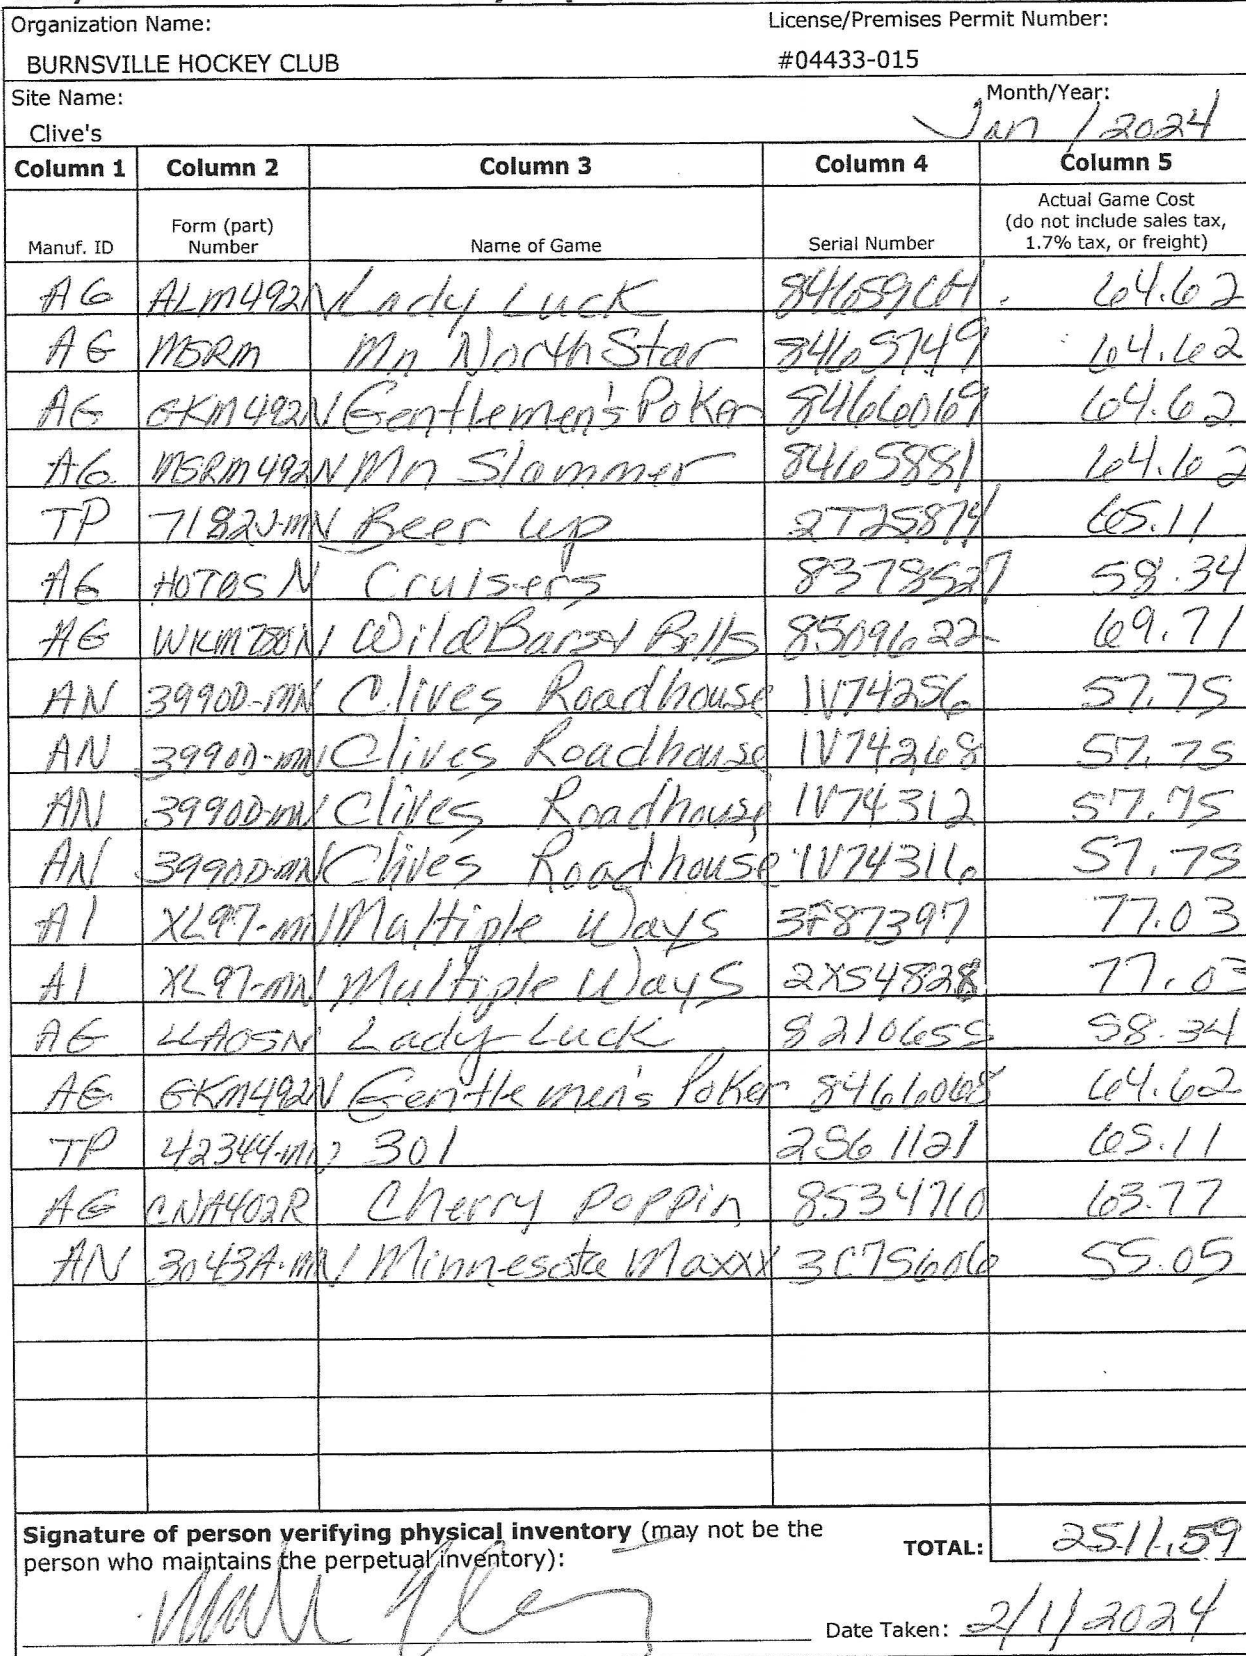 Organization Name: License/Premises Permit Number:
BURNSVILLE HOCKEY CLUB #04433-015
Site Name: Month/Year:
Clive's Jan / 2024
Column 1 Column 2 Column 3 Column 4 Column 5
Manuf. ID Form (part) Number Name of Game Serial Number Actual Game Cost (do not include sales tax, 1.7% tax, or freight)
AG ALM492N Lady Luck 64.62
AG MSRM Mn North Star 8465749 64.62
AG GKM492N Gentlemen's Poker 8466069 64.62
AG MSRM492N Mn Slammer 8465881 64.62
TP 7182J-MN Beer Up 2T25874 65.11
AG HOT05N Cruisers 8378527 58.34
AG Wild Bells 8509622 69.71
AN 3990D-MN Clives Roadhouse 1V74256 57.75
AN 3990D-MN Clives Roadhouse 1V74268 57.75
AN 3990D-MN Clives Roadhouse 1V74312 57.75
AN 3990D-MN Clives Roadhouse 1V74316 57.75
AI XL97-MN Multiple Ways 3F87397 77.03
AI XL97-MN Multiple Ways 2XS4828 77.03
AG LLA05N Lady Luck 8210655 58.34
AG GKM492N Gentlemen's Poker 8466068 64.62
TP 42344-MN 301 2S61121 65.11
AG CNA402R Cherry Poppin 8534710 63.77
AN 3043A-MN Minnesota Maxxx 3C75606 55.05
Signature of person verifying physical inventory (may not be the
person who maintains the perpetual inventory): TOTAL: 2511.59
Date Taken: 2/1/2024